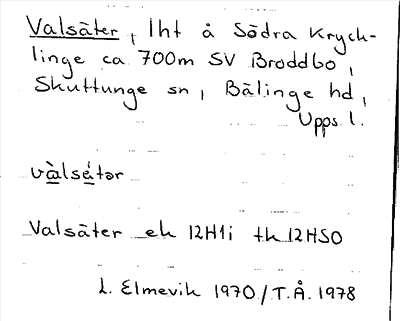 Valsäter, lht å Södra Kryck-
linge ca 700m SV Broddbo,
Skuttunge sn, Bälinge hd,
Upps l.
vàlsétər
Valsäter ek 12H1i tk 12HSO
L. Elmevik 1970/T.Å. 1978